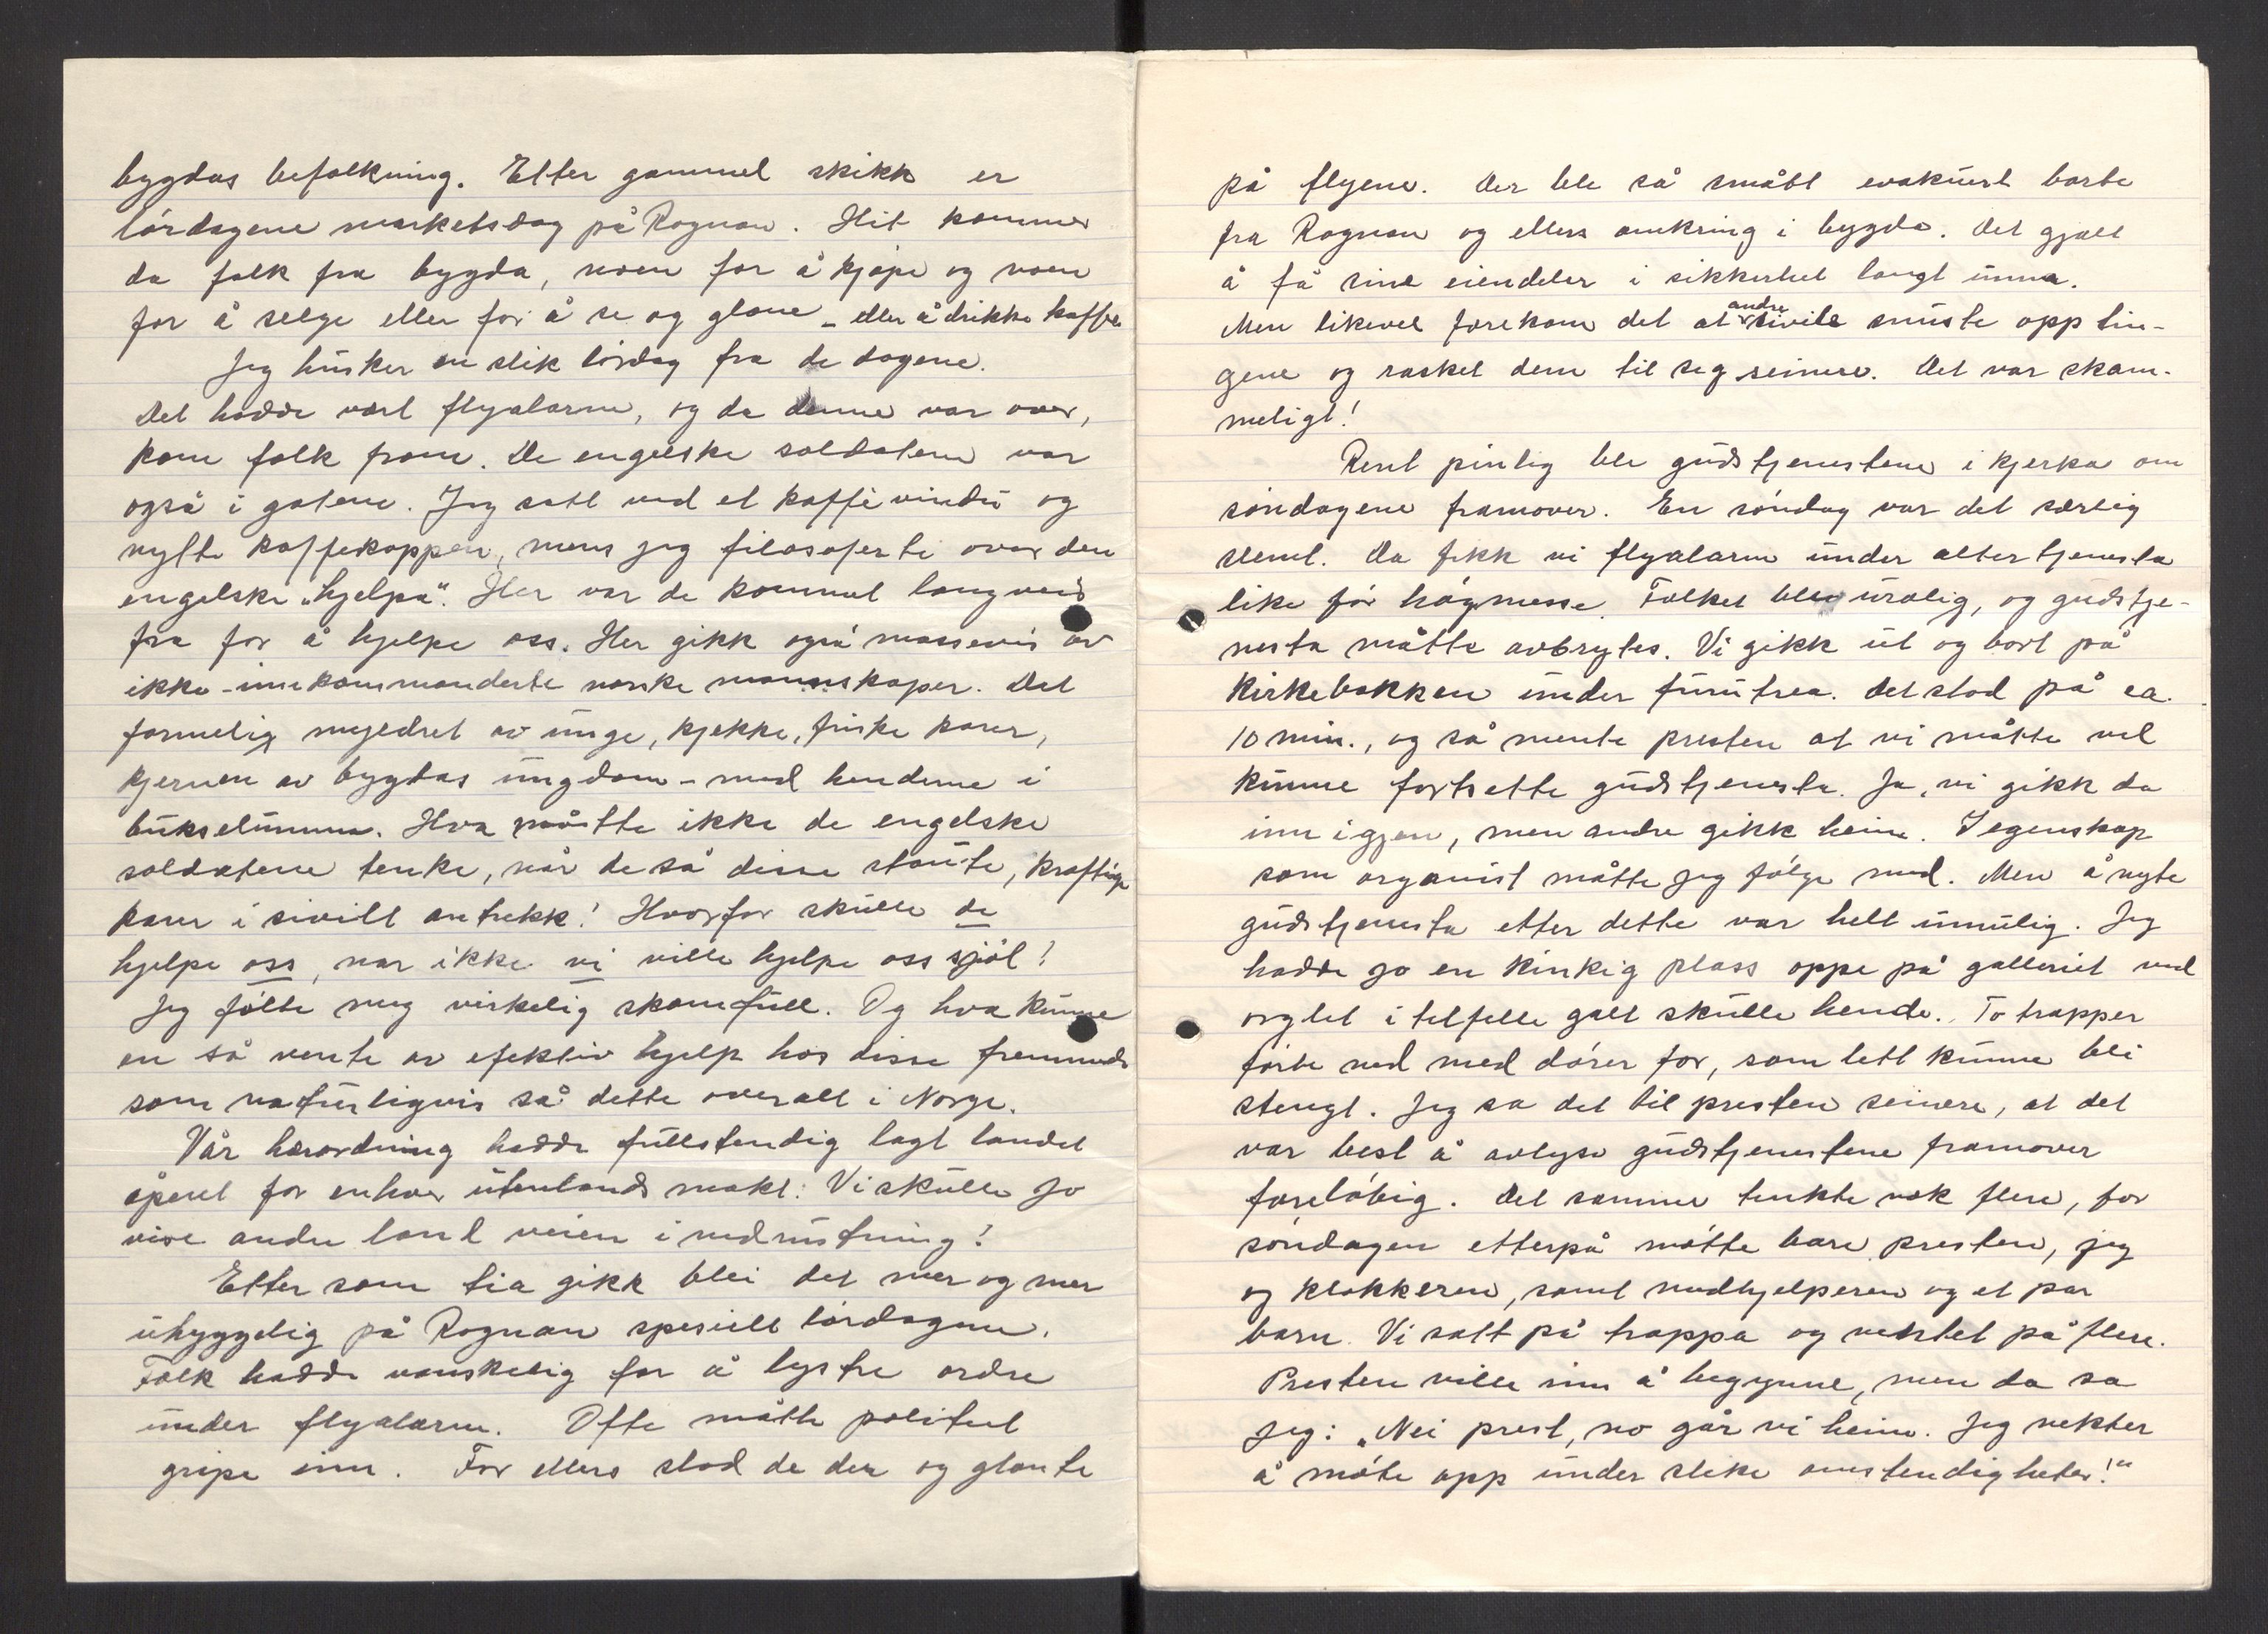 bygdas befolkning. Etter gammel skikk er
lørdagene marketsdag på Rognan. Hit kommer
da folk fra bygda, noen for å kjøpe og noen
for å selge eller for å se og glane – eller å drikke kaffe
Jeg husker en slik lørdag fra de dagene.
Det hadde vært flyalarm, og da denne var over,
kom folk fram. De engelske soldatene var
også i gatene. Jeg satt ved et kaffévindu og
nytte kaffekoppen, mens jeg filosoferte over den
engelske „hjelpa“. Her var de kommet langveis
fra for å hjelpe oss. Her gikk også massevis av
ikke-innkommanderte norske mannskaper. Det
formelig myldret av unge, kjekke, friske karer,
kjernen av bygdas ungdom – med hendene i
bukselumma. Hva måtte ikke de engelske
soldatene tenke, når de så disse staute, kraftige
karer i sivilt antrekk! Hvorfor skulle de
hjelpe oss, når ikke vi ville hjelpe oss sjøl!
Jeg følte meg virkelig skamfull. Og hva kunne
en så vente av efektiv hjelp hos disse fremmede
som naturligvis så dette overalt i Norge.
Vår hærordning hadde fullstendig lagt landet
åpent for enhver utenlands makt: Vi skulle jo
vise andre land veien i nedrustning!
Etter som tia gikk blei det mer og mer
uhyggelig på Rognan spesiell lørdagene.
Folk hadde vanskelig for å lystre ordre
under flyalarm. Ofte måtte politiet
gripe inn. For ellers stod de der og glante
på flyene. Der ble så smått evakuert borte
fra Rognan og ellers omkring i bygda. Det gjalt
å få sine eiendeler i sikkerhet langt unna.
Men likevel forekom det at andre sivile snuste opp tin-
gene og rasket dem til seg seinere. Det var skam-
meligt!
Rent pinlig ble gudstjenestene i kjerka om
søndagene framover. En søndag var det særlig
slemt. Da fikk vi flyalarm under altertjenesta
like før høgmesse. Folket blei urolig, og gudstje-
nesta måtte avbrytes. Vi gikk ut og bort på
kirkebakken under furutrea. Det stod på ca.
10 min., og så mente presten at vi måtte vel
kunne fortsette gudstjenesta. Ja, vi gikk da
inn igjen, men andre gikk heim. I egenskap
som organist måtte jeg følge med. Men å nyte
gudstjenesta etter dette var helt umulig. Jeg
hadde jo en kinkig plass oppe på galleriet ved
orglet i tilfelle galt skulle hende. To trapper
førte ned med dører for, som lett kunne bli
stengt. Jeg sa det til presten seinere, at det
var best å avlyse gudstjenestene framover
foreløbig. Det samme tenkte nok flere, for
søndagen etterpå møtte bare presten, jeg
og klokkeren, samt medhjelperen og et par
barn. Vi satt på trappa og ventet på flere.
Presten ville inn å begynne, men da sa
jeg: „Nei prest, no går vi heim. Jeg nekter
å møte opp under slike omstendigheter!“